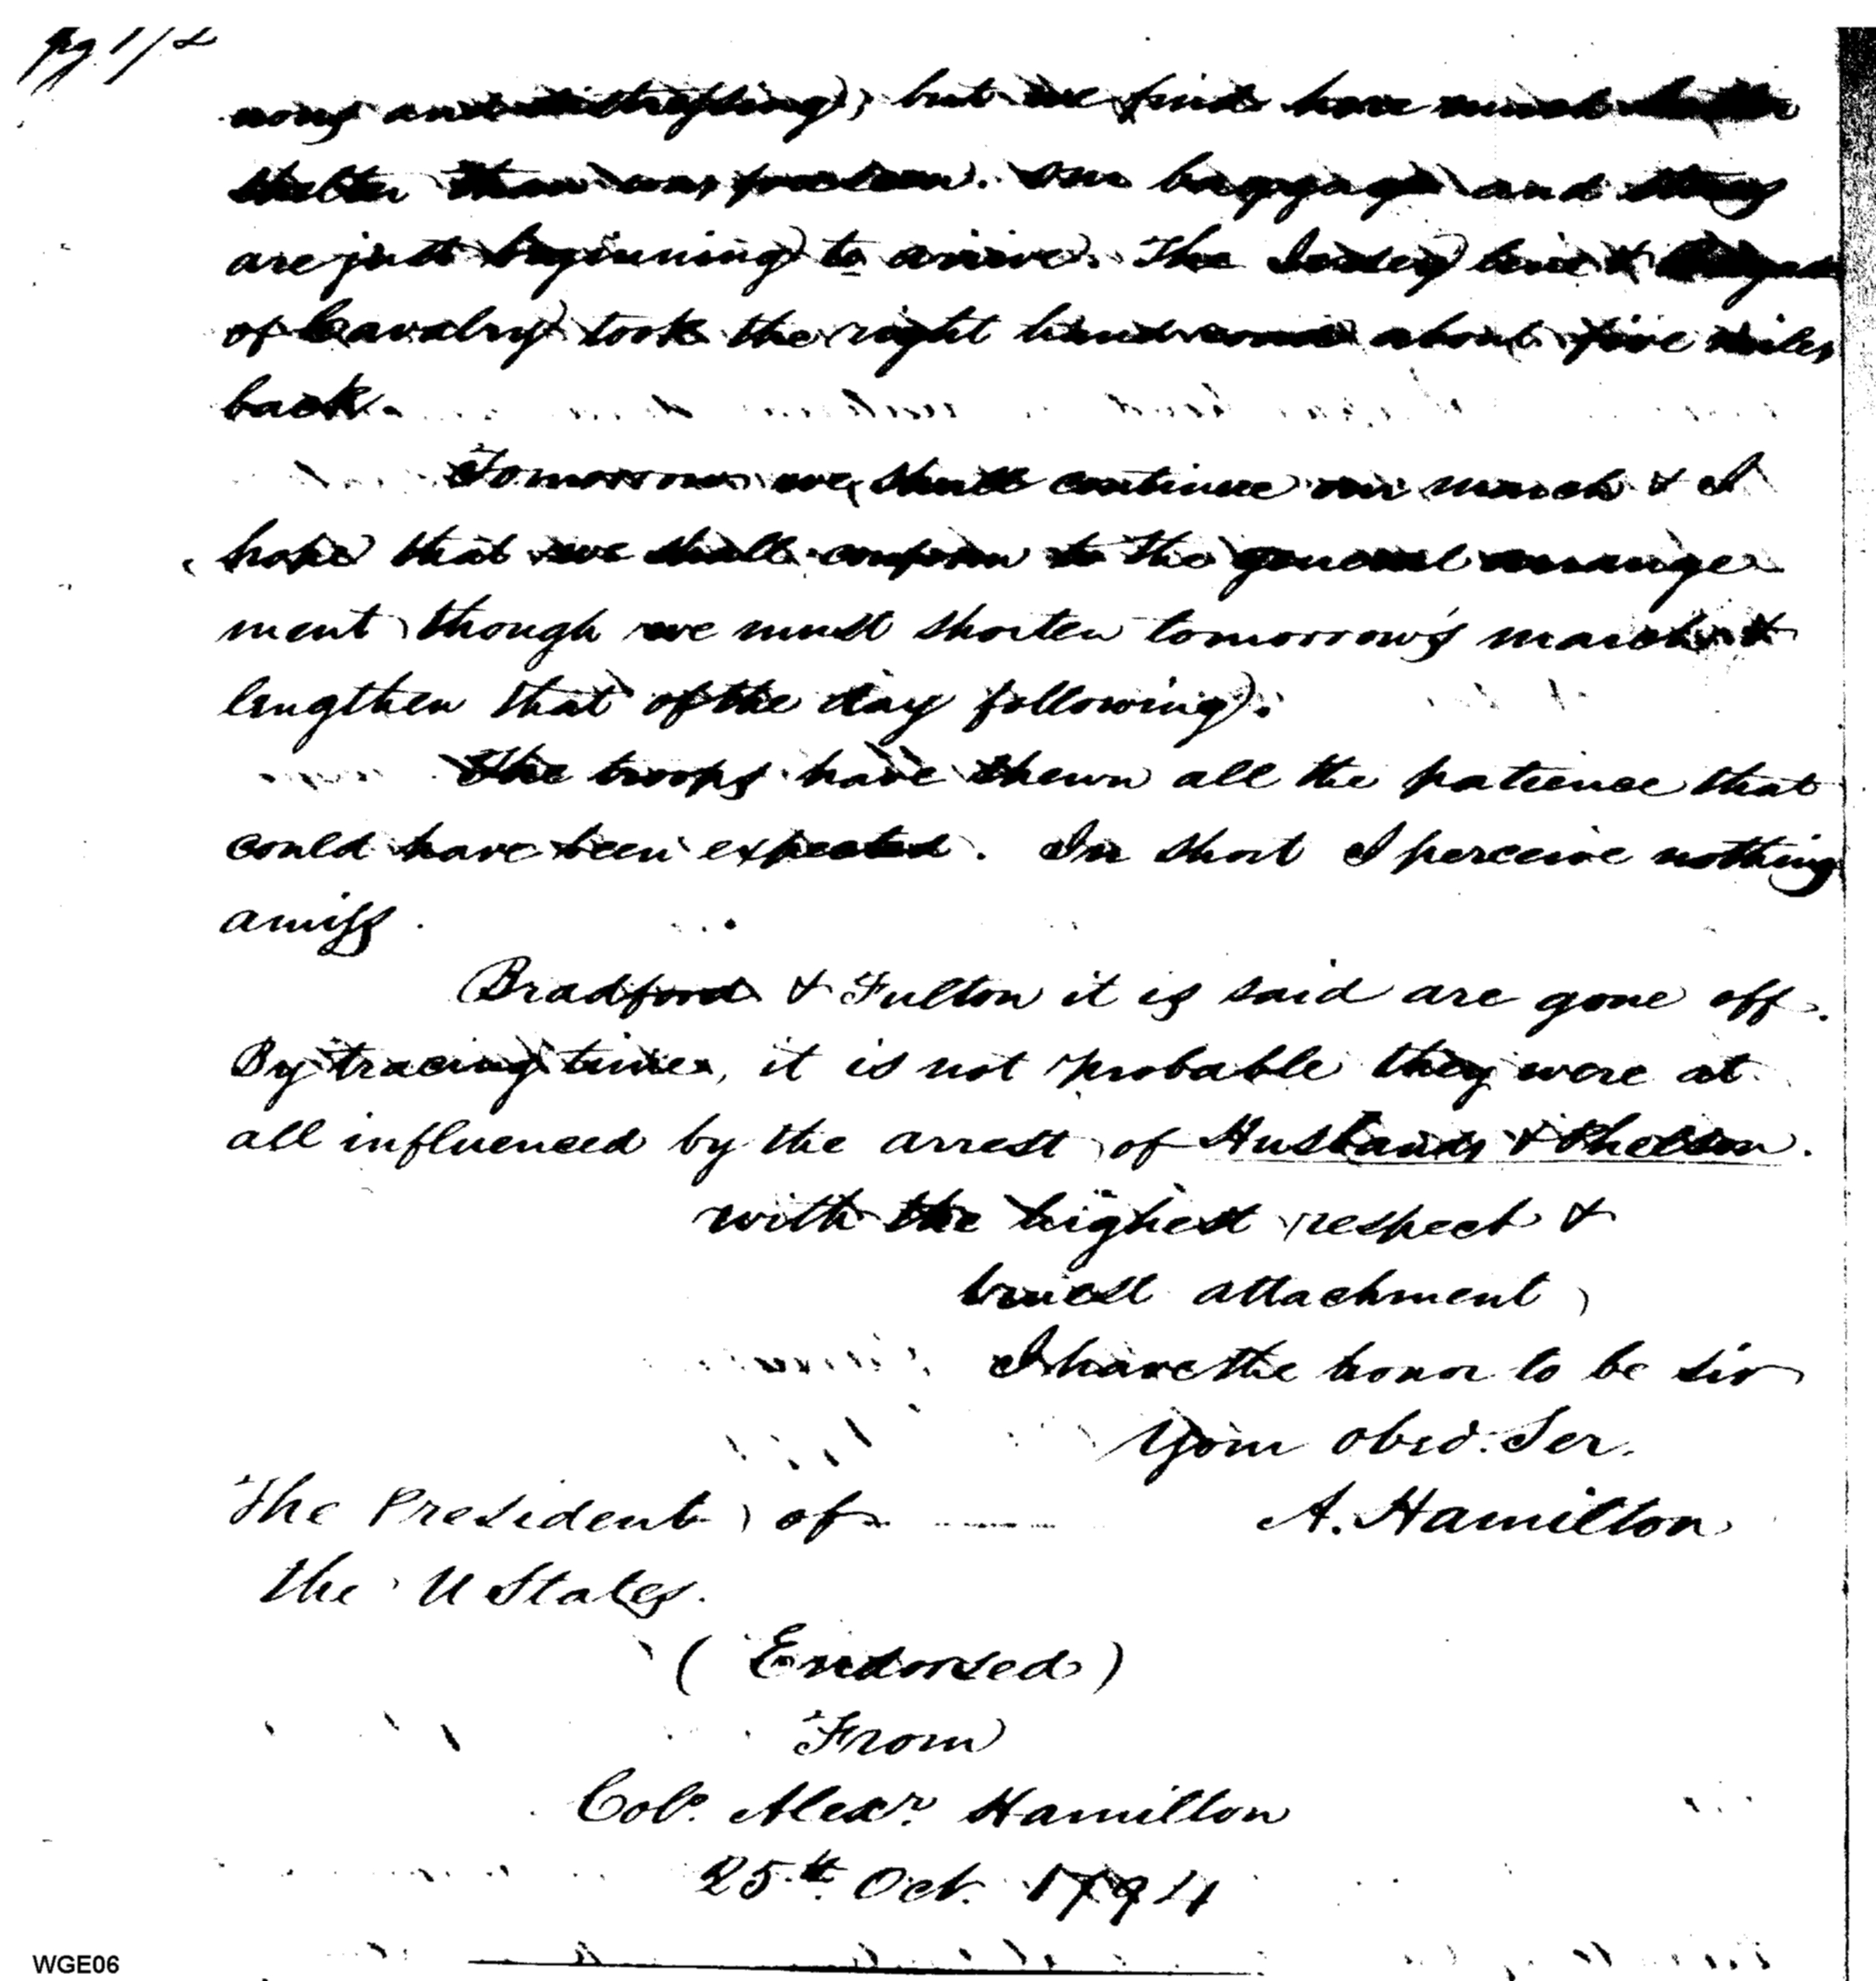 pg 1/2
nous and straggling; but we find here much better
shelter than was foretold. Our baggage and stores
are just beginning to arrive. The Jersey line &
of Cavalry took the right hand road about five miles
back.
Tomorrow we shall continue our march & I
hope that we shall conform to the general arrange
ment though we must shorten tomorrow's march &
lengthen that of the day following.
The troops have shewn all the patience that
could have been expected. In short I perceive nothing
amiss.
Bradford & Fulton it is said are gone off.
By tracing times, it is not probable they were at
all influenced by the arrest of Husbands &
with the highest respect &
truest attachment
I have the honor to be Sir
Your obed. Ser.
The President of A. Hamilton
the U States.
(Endorsed)
From
Col. Alexr. Hamilton
25th Oct. 1794
WGE06